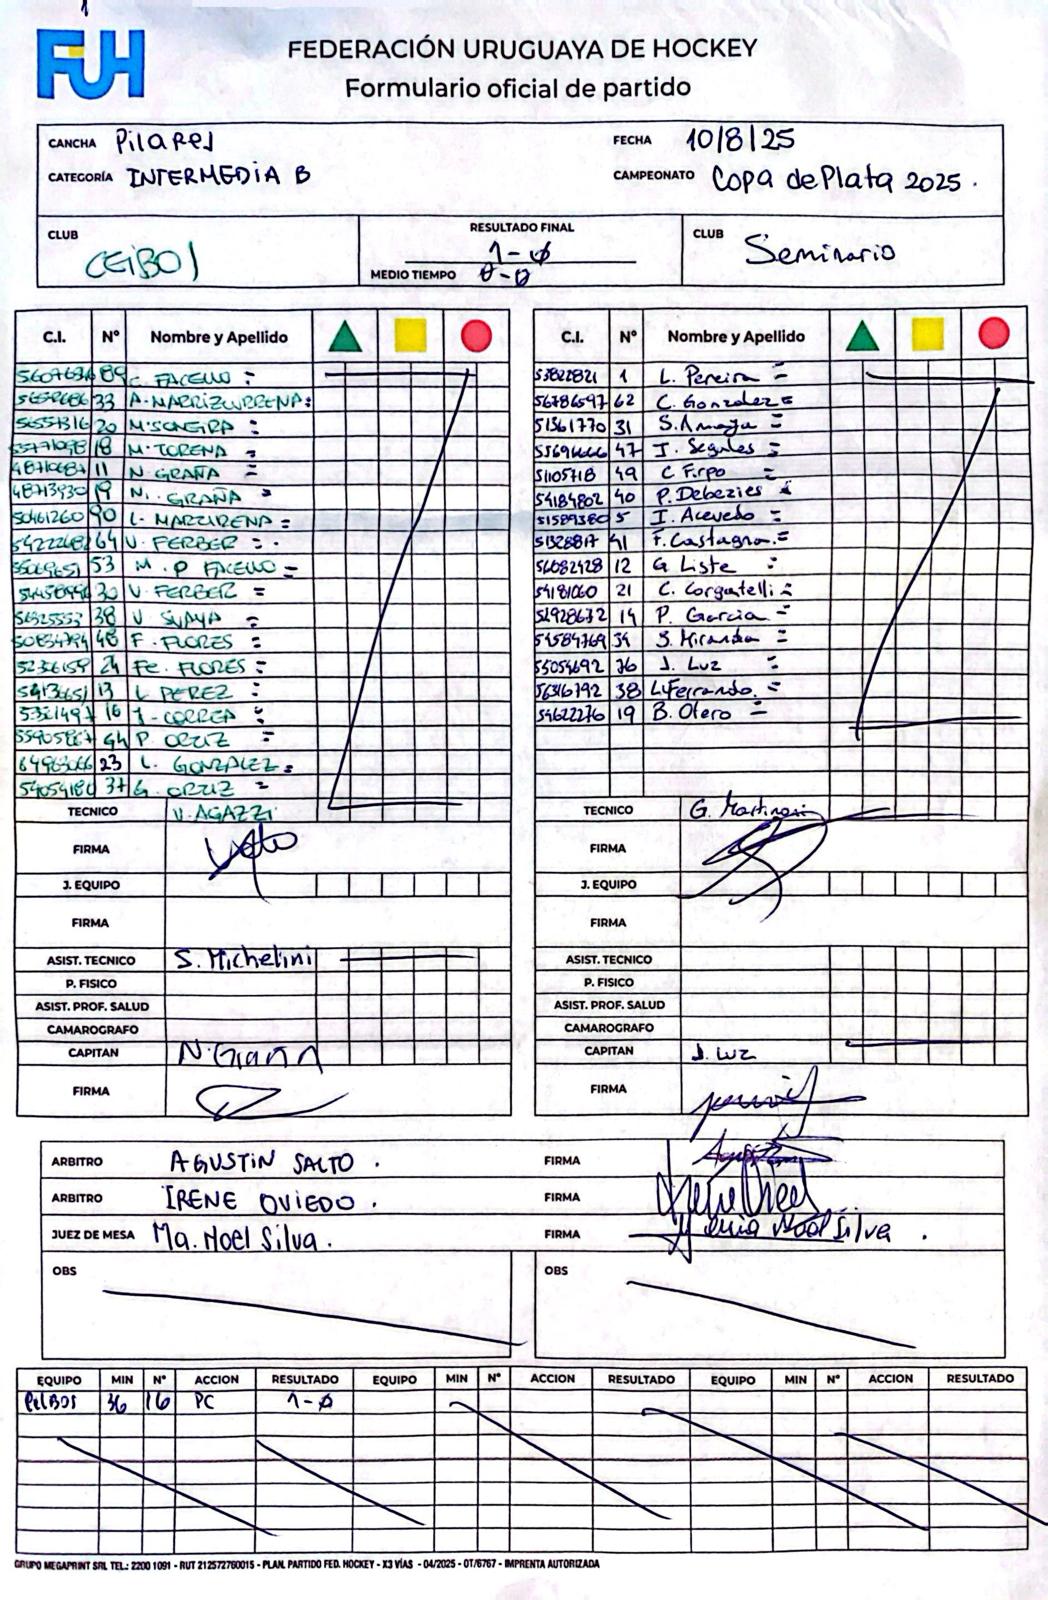 FUH
FEDERACIÓN URUGUAYA DE HOCKEY
Formulario oficial de partido
CANCHA Pilares FECHA 10/8/25
CATEGORÍA INTERMEDIA B CAMPEONATO Copa de Plata 2025.
CLUB CEIBOS RESULTADO FINAL 1-0 CLUB Seminario
MEDIO TIEMPO 0-0
C.I. Nº Nombre y Apellido C.I. Nº Nombre y Apellido
89 C. FACELLO 53822821 1 L. Pereira
33 56786597 62 C. Gonzalez
20 51561770 31 S. Amaya
18 M. TORENA 47 I. Segales
11 N. GRAÑA 51105718 49 C. Firpo
48713930 19 N. GRAÑA 54184802 40 P. Debezies
50461260 90 L. MARZIRENA 51589380 5 I. Acevedo
64 V. FERBER 51328817 41 F. Castagna.
53 M. P FACELLO 56082428 12 G Liste
30 V. FERBER 54181060 21 C.
38 V 52928672 14 P. Garcia
48 F. FLORES 54584769 34 S. Miranda
24 Fe. FLORES 55054692 36 J. Luz
13 L PEREZ 56316792 38 L. Ferrando.
16 J. CORREA 54622276 19 B. Olero
44 P. ORTIZ
23 L. GONZALEZ
37 G. ORTIZ
TECNICO V. AGAZZI TECNICO G. Martinon
FIRMA FIRMA
J. EQUIPO J. EQUIPO
FIRMA FIRMA
ASIST. TECNICO S. Michelini ASIST. TECNICO
P. FISICO P. FISICO
ASIST. PROF. SALUD ASIST. PROF. SALUD
CAMAROGRAFO CAMAROGRAFO
CAPITAN N. Graña CAPITAN J. Luz
FIRMA FIRMA
ARBITRO AGUSTIN SALTO. FIRMA
ARBITRO IRENE OVIEDO. FIRMA
JUEZ DE MESA Ma. Noel Silva. FIRMA Maria Noel Silva.
OBS OBS
EQUIPO MIN Nº ACCION RESULTADO EQUIPO MIN Nº ACCION RESULTADO EQUIPO MIN Nº ACCION RESULTADO
36 16 PC 1-0
GRUPO MEGAPRINT SRL TEL.: 2200 1091 - RUT 212572760015 - PLAN. PARTIDO FED. HOCKEY - X3 VÍAS - 04/2025 - OT/6767 - IMPRENTA AUTORIZADA